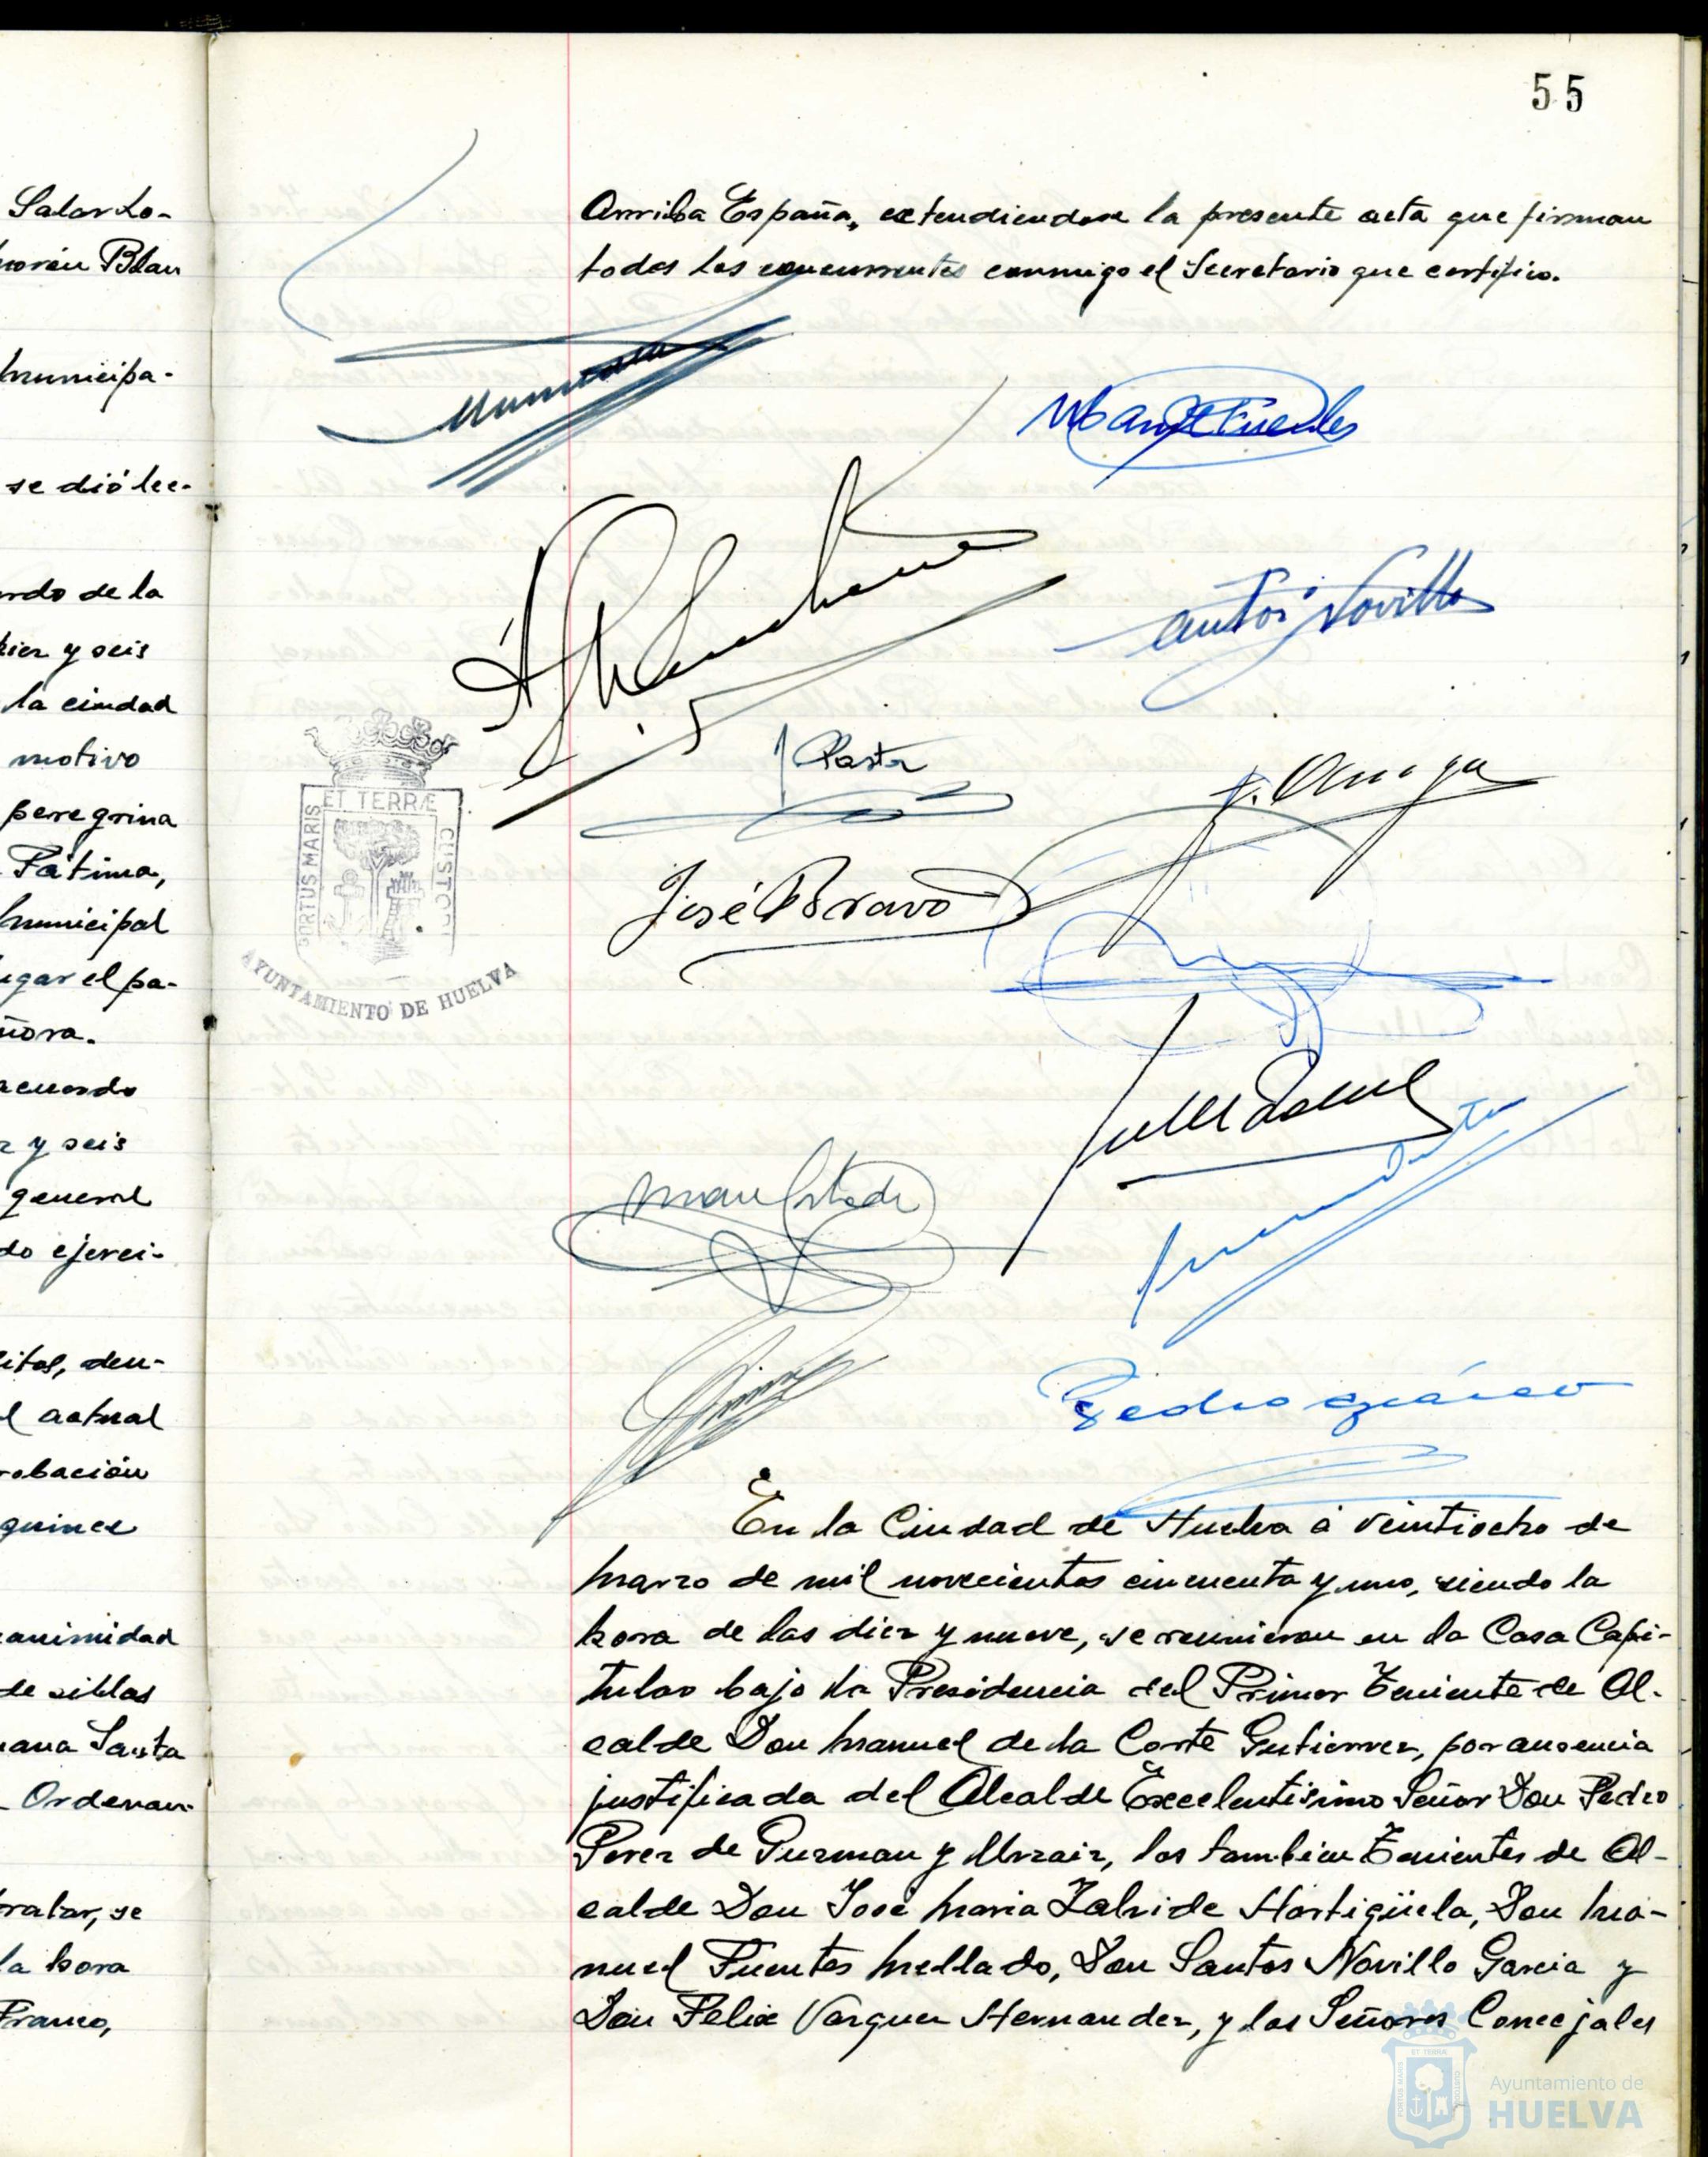 Salar Lo-
Blan
municipa-
se dió lec-
de la
y seis
la ciudad
motivo
peregrina
Fátima,
municipal
el pa-
acuerdo
y seis
general
do ejerci-
den-
actual
quince
de sillas
Santa
Ordenan-
se
la hora
Franco,
55
Arriba España, extendiendose la presente acta que firman
todos los concurrentes conmigo el Secretario que certifico.
Manuel Fuentes
Santos Novillo
Pastor
José Bravo
Pedro
ET TERRÆ
PORTUS MARIS
CUSTODI
AYUNTAMIENTO DE HUELVA
En la Ciudad de Huelva á veintiocho de
marzo de mil novecientos cincuenta y uno, siendo la
hora de las diez y nueve, se reunieron en la Casa Capi-
tular bajo la Presidencia del Primer Teniente de Al-
calde Don Manuel de la Corte Gutierrez, por ausencia
justificada del Alcalde Excelentisimo Señor Don Pedro
Perez de Guzman y Urzaiz, los tambien Tenientes de Al-
calde Don José Maria Zalvide Hortigüela, Don Ma-
nuel Fuentes Mellado, Don Santos Novillo Garcia y
Don Felix Vazquez Hernandez, y los Señores Concejales
Ayuntamiento de
HUELVA